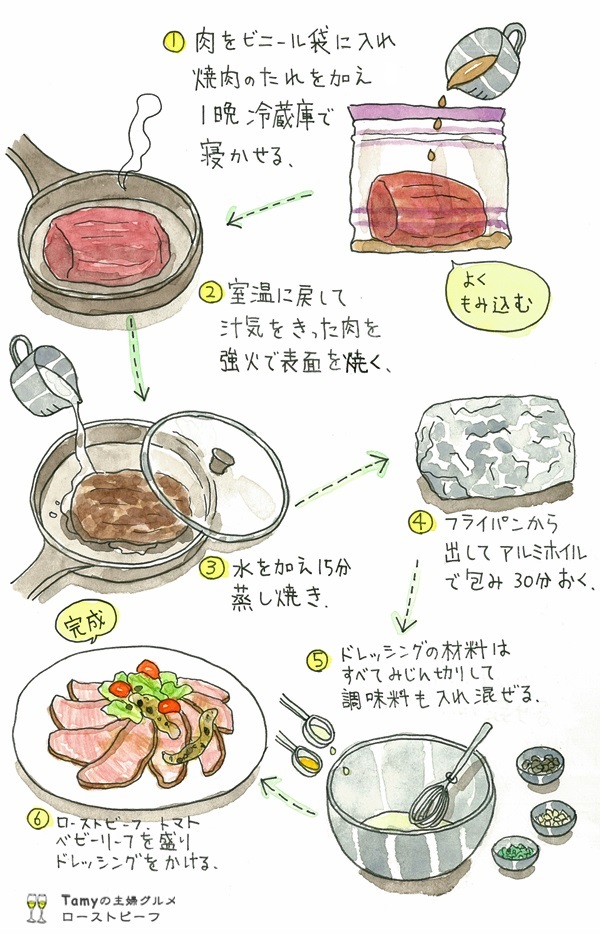 ① 肉をビニール袋に入れ
焼肉のたれを加え
1晩 冷蔵庫で
寝かせる、
よく
もみ込む
② 室温に戻して
汁気をきった肉を
強火で表面を焼く、
③ 水を加え15分
蒸し焼き、
④ フライパンから
出して アルミホイル
で包み 30分おく、
⑤ ドレッシングの材料は
すべてみじん切りして
調味料も入れ混ぜる、
完成
⑥ ローストビーフ、トマト
ベビーリーフを盛り
ドレッシングをかける、
Tamyの主婦グルメ
ローストビーフ